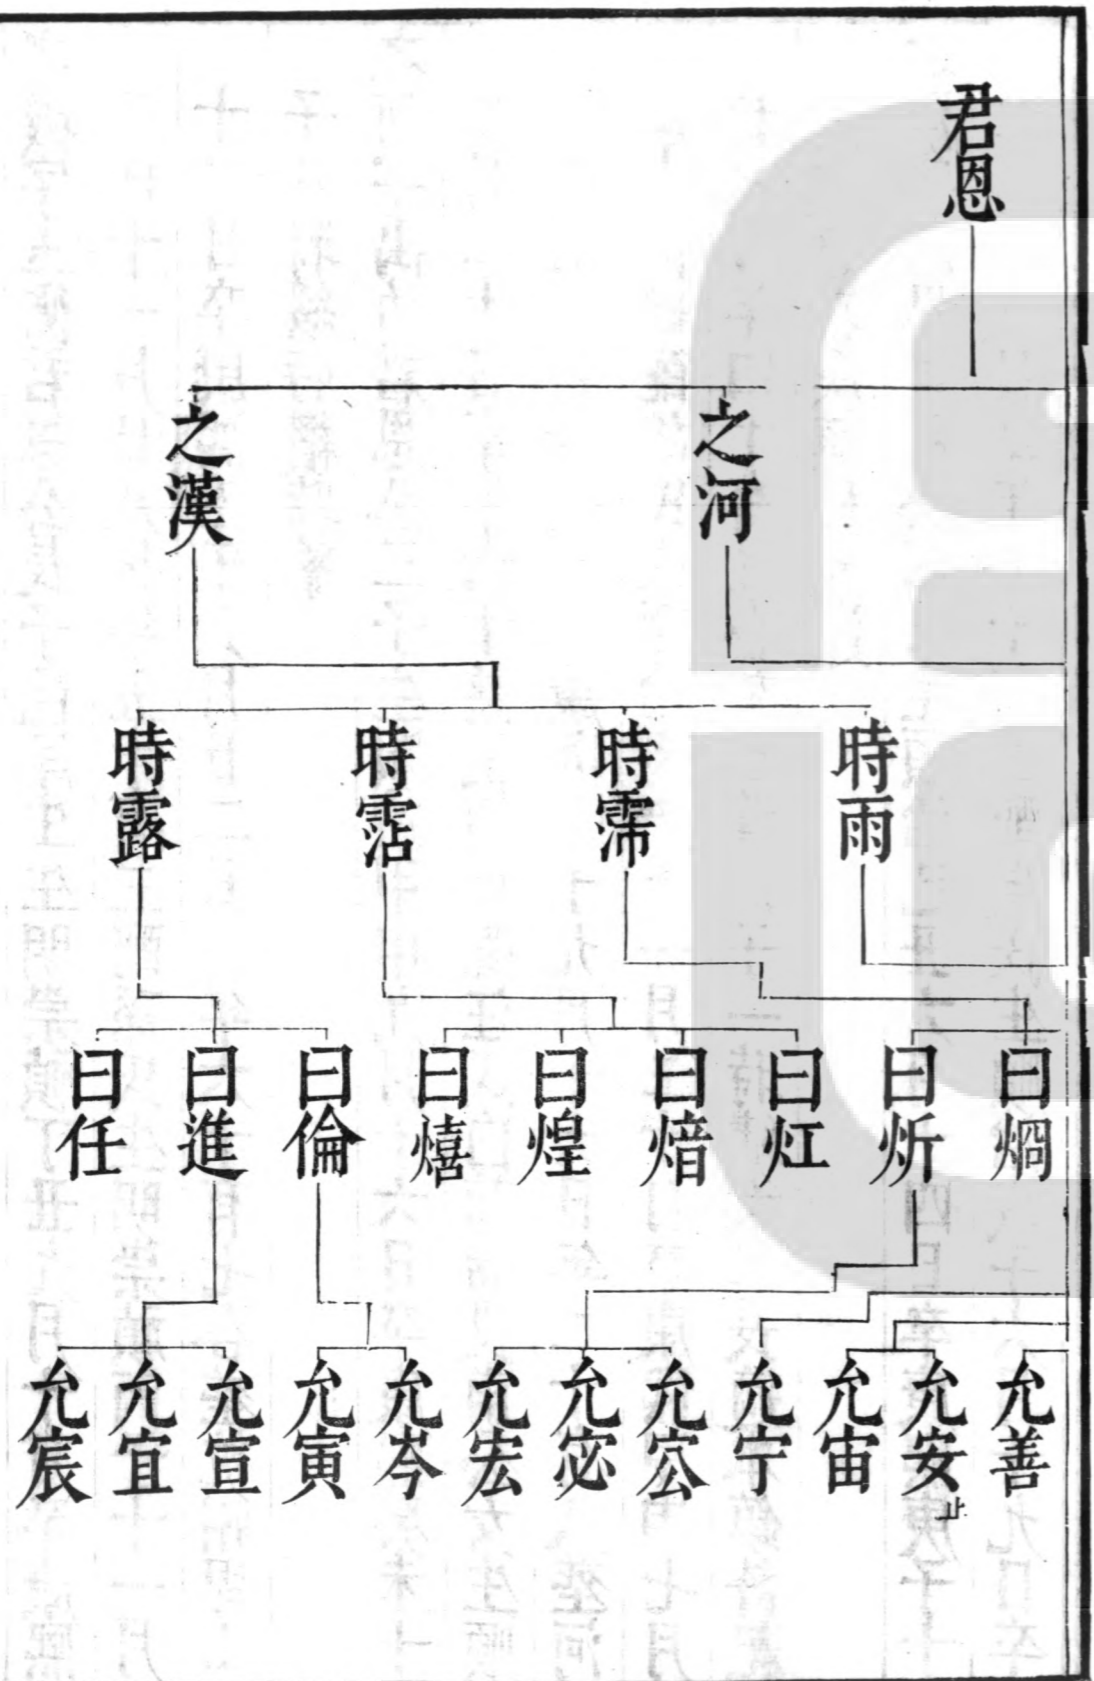 君恩
之河
之漢
時雨
時霈
時霑
時露
曰烱
曰炘
曰灴
曰焙
曰煌
曰熺
曰倫
曰進
曰任
允善
允安止
允宙
允宁
允宏
允岑
允寅
允宣
允宜
允宸